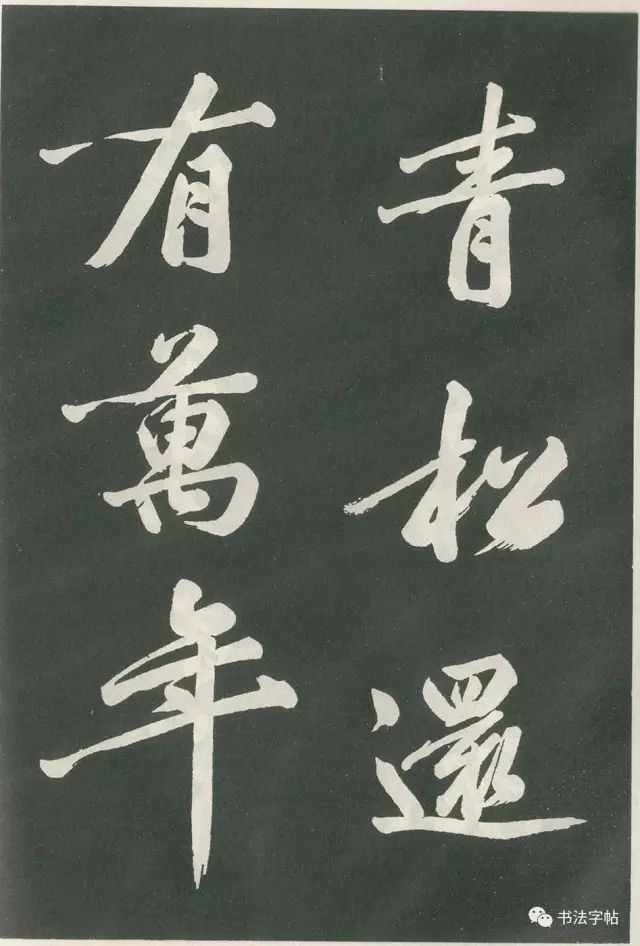 青松還
有萬年
书法字帖